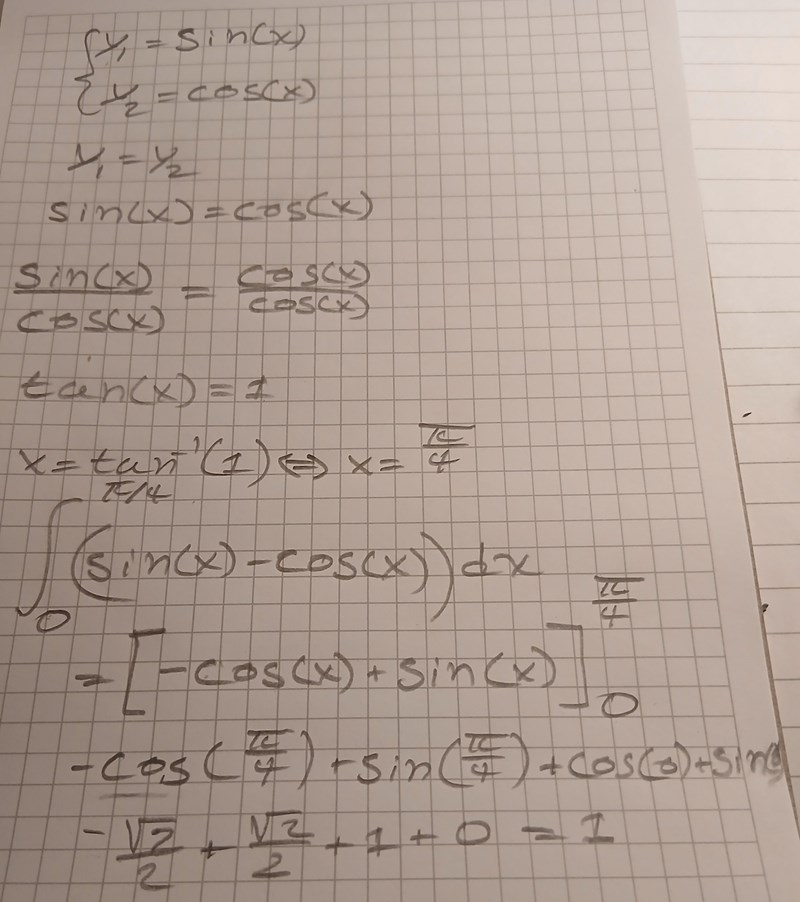 {y₁ = sin(x)
{y₂ = cos(x)
y₁ = y₂
sin(x) = cos(x)
sin(x)/cos(x) = cos(x)/cos(x)
tan(x) = 1
x = tan⁻¹(1) ⇔ x = π/4
∫₀^(π/4) (sin(x) - cos(x)) dx
= [-cos(x) + sin(x)]₀^(π/4)
-cos(π/4) + sin(π/4) + cos(0) + sin(0)
-√2/2 + √2/2 + 1 + 0 = 1